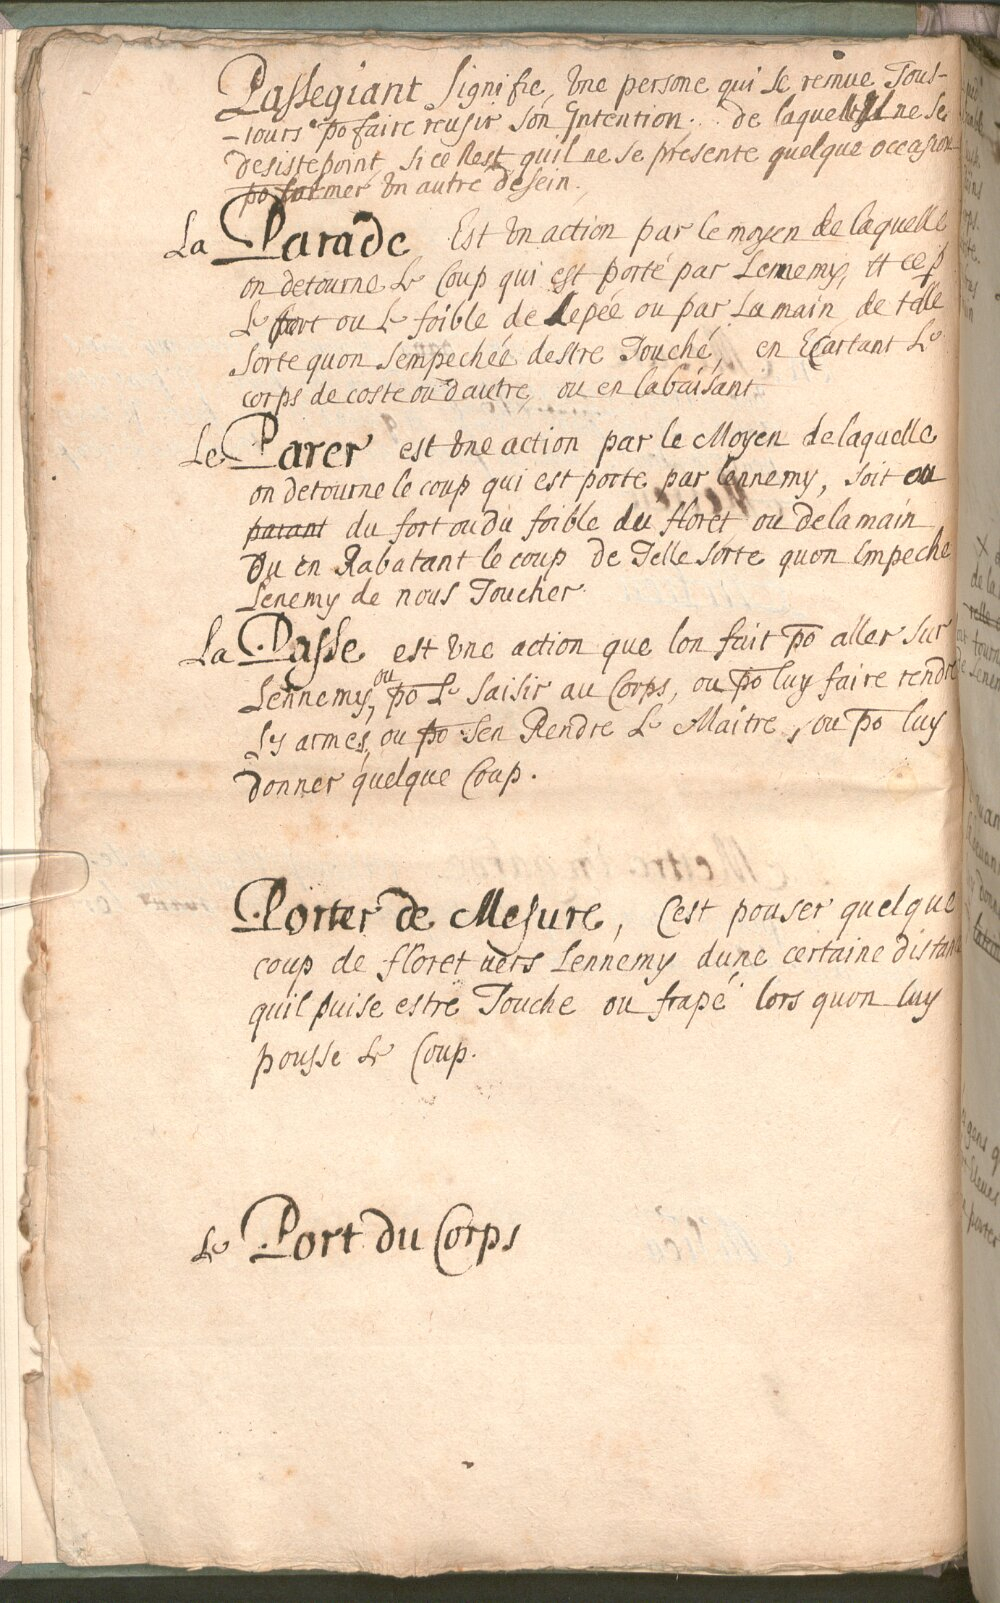 Passegiant Signifie, Une persone qui se remue Tous-
-iours po faire reusir son Intention. de laquelle Il ne se
desiste point si ce Nest quil ne se presente quelque occasion
po former Un autre desein.
La Parade Est Un action par le moyen de laquelle
on detourne Le Coup qui est porté par Lennemy, et ce p
Le fort ou Le foible de Lepée ou par La main de telle
Sorte quon Sempechée destre Touché, en Ecartant Le
corps de coste ou d'autre ou en labaisant
Le Parer est Une action par le Moyen de laquelle
on detourne le coup qui est porte par lennemy, soit ou
parant du fort ou du foible du floret ou de la main
Ou en Rabatant le coup de Telle sorte quon Empeche
Lenemy de nous Toucher
La Passe est Une action que lon fait po aller sur
Lennemy, ou po Le saisir au Corps, ou po luy faire rendre
Ly armes, ou po Sen Rendre Le Maitre, ou po luy
donner quelque Coup.
Porter de Mesure, Cest pouser quelque
coup de floret vers Lennemy dune certaine distan
quil puise estre Touche ou frapé lors quon luy
pousse Le Coup.
Le Port du Corps